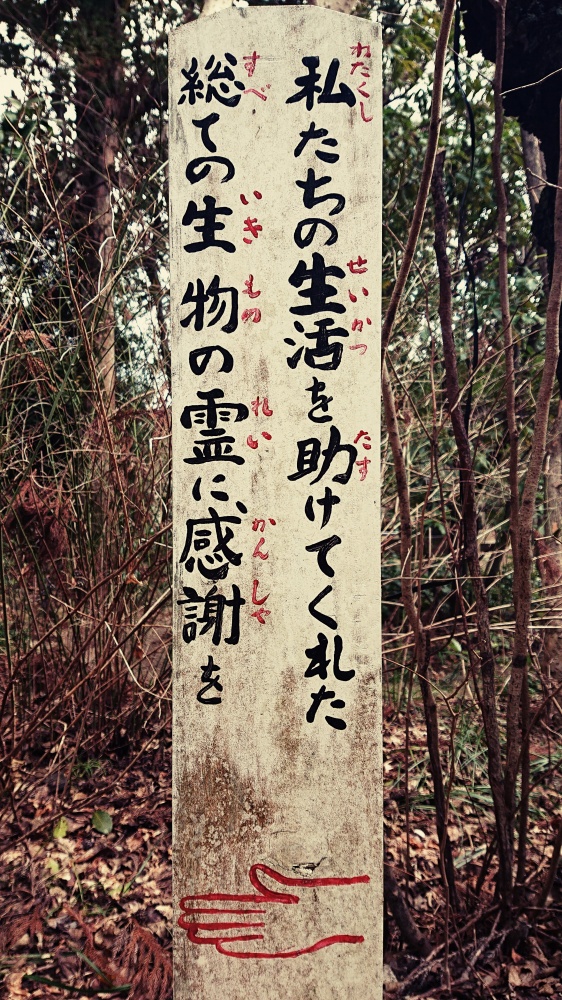 私たちの生活を助けてくれた
わたくし
せいかつ
たす
総ての生物の霊に、感謝を
すべ
いき
もの
れい
かんしゃ